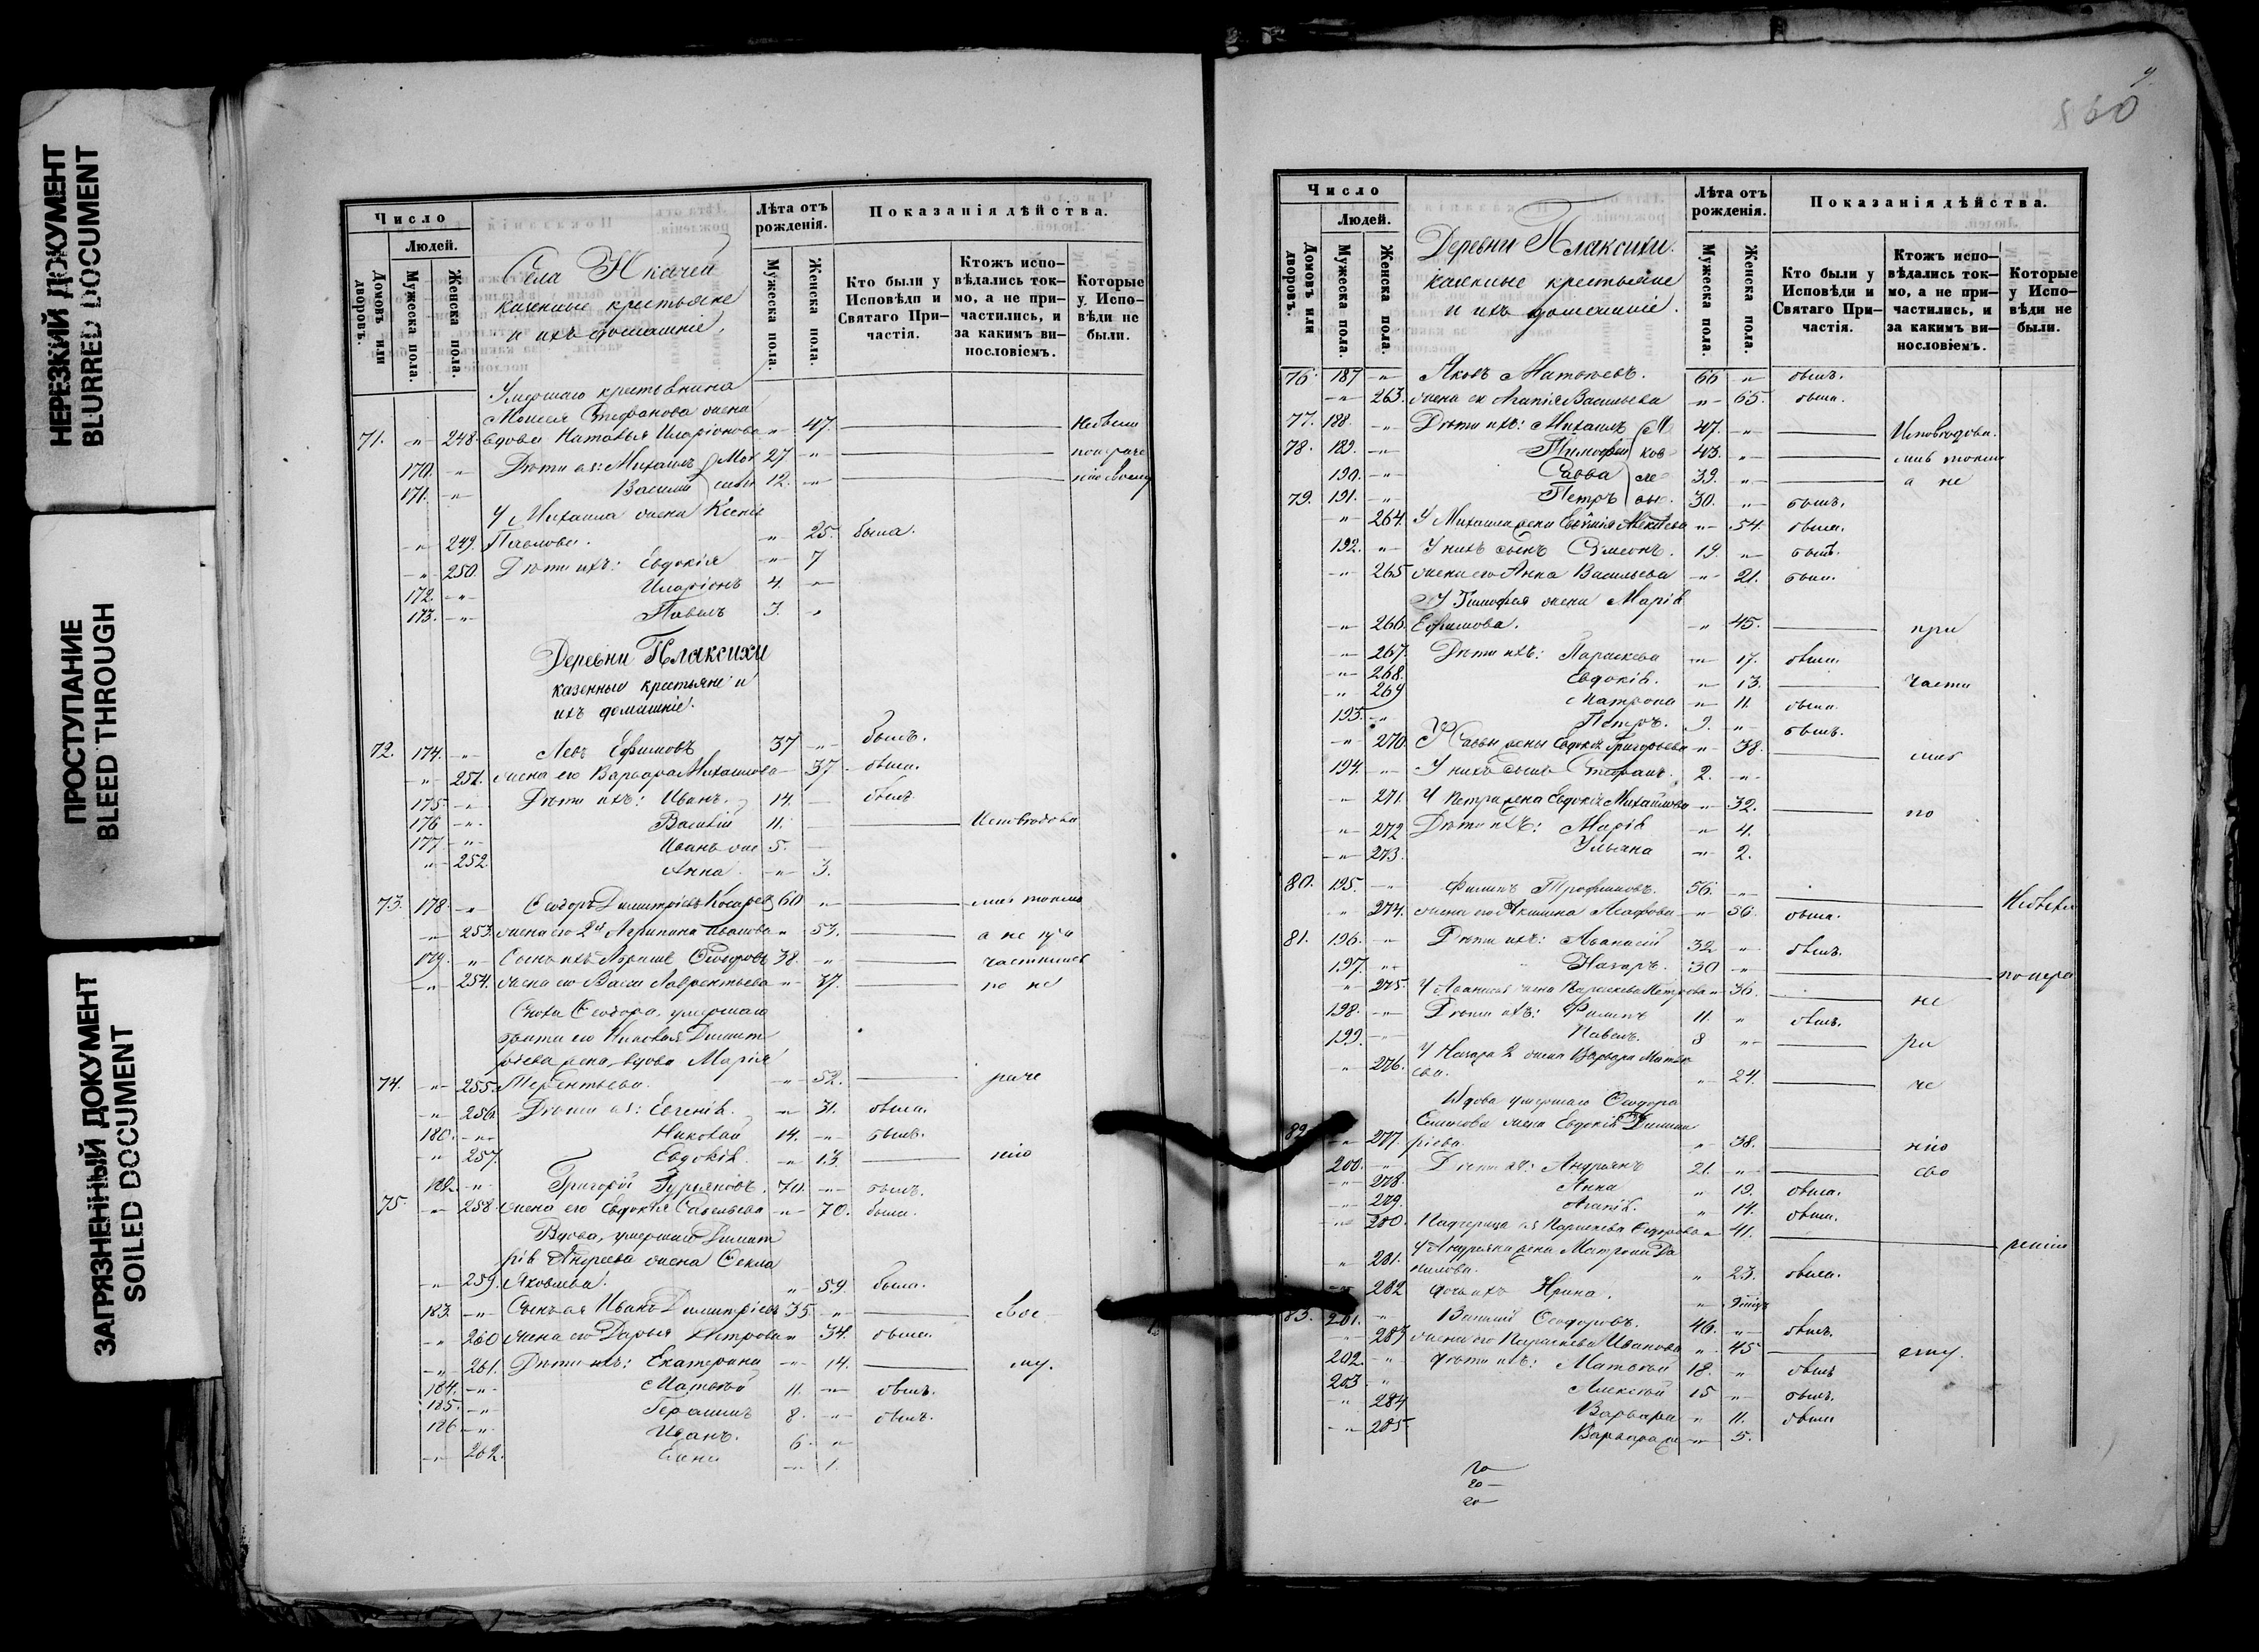 НЕРЕЗКИЙ ДОКУМЕНТ
BLURRED DOCUMENT
ПРОСТУПАНИЕ
BLEED THROUGH
ЗАГРЯЗНЕННЫЙ ДОКУМЕНТ
SOILED DOCUMENT
Число
Людей.
Домовъ или дворовъ.
Мужеска пола.
Женска пола.
Села
казенные крестьяне
и ихъ домашніе.
Лѣта отъ рожденія.
Мужеска пола.
Женска пола.
Показанія дѣйства.
Кто были у Исповѣди и Святаго Причастія.
Ктожъ исповѣдались токмо, а не причастились, и за какимъ винословіемъ.
Которые у Исповѣди не были.
Умершаго крестьянина
Моисея Стефанова жена
71. -"- 248. вдова Наталья Иларіонова -"- 47.
170. -"- Дѣти ея: Михаилъ 27 -"-
171. -"- Василій 12. -"-
У Михаила жена Ксенія
-"- 249. Павлова. -"- 25. была.
-"- 250. Дѣти ихъ: Евдокія -"- 7
172. -"- Иларіонъ 4. -"-
173. -"- Павелъ 3. "
Деревни Плаксихи
казенные крестьяне и
ихъ домашніе.
72. 174. -"- Левъ Ефимовъ 37 -"- былъ.
-"- 251. жена его Варвара Михаилова - 37 была.
175 -"- Дѣти ихъ: Иванъ. 14. — былъ
176 -"- Василій 11. — Исповѣдова
177 -"- Иванъ 5. —
-"- 252. Анна. -"- 3.
73. 178. -"- Ѳеодоръ Димитріевъ Косарев 60 -"- лись токмо
-"- 253. жена его 2я Агрипина Иванова " 53. а не при
179. " Сынъ ихъ Ѳеодоровъ 38. -"- частились
-"- 254. жена его Васса Лаврентьева -"- 37. по не
Сноха Ѳеодора, умершаго
брата его Николая Димит
ріева жена вдова Марія
74. -"- 255. Терентьева. -"- 52. раче
-"- 256. Дѣти ея: Евгенія. -"- 31. была.
180. -"- Николай 14. -"- былъ.
-"- 257. Евдокія. -"- 13. нію
182. -"- Григорій Гурьяновъ. 70. -"- былъ.
75. -"- 258. жена его Евдокія Савельева -"- 70. была.
Вдова, умершаго Димит
рія Андреева жена Ѳекла
-"- 259. Яковлева. " 59. была.
183. -"- Сынъ ея Иванъ Димитріевъ 35. -"- свое
-"- 260 жена его Дарья Петрова " 34. была.
-"- 261. Дѣти ихъ: Екатерина -"- 14. му.
184. -"- Матвей 11. -"- былъ.
185. -"- Герасимъ 8. -"- былъ.
186 -"- Иванъ. 6. "
-"- 262. Елена -"- 1.
860
Число
Людей.
Домовъ или дворовъ.
Мужеска пола.
Женска пола.
Деревни Плаксихи.
казенные крестьяне
и ихъ домашніе.
Лѣта отъ рожденія.
Мужеска пола.
Женска пола.
Показанія дѣйства.
Кто были у Исповѣди и Святаго Причастія.
Ктожъ исповѣдались токмо, а не причастились, и за какимъ винословіемъ.
Которые у Исповѣди не были.
76. 187 -"- Яковъ Матвеевъ. 66 " былъ.
-"- 263. жена ея Агапія Васильева -"- 65. была.
77. 188. -"- Дѣти ихъ: Михаилъ 47. -"- Исповѣдова
78. 189. -"- Тимофей 43. -"- лись токмо
190. -"- Савва 39. -"- а не
79. 191. -"- Петръ 30. -"- былъ.
-"- 264. У Михаила жена Евфимія -"- 54. была.
192. -"- У нихъ сынъ Сѵмеонъ. 19. -"- былъ.
-"- 265 жена его Анна Васильева -"- 21. была.
У Тимофея жена Марія
-"- 266. Ефимова. -"- 45. при
-"- 267. Дѣти ихъ: Параскева -"- 17. была.
-"- 268. Евдокія. -"- 13. части
" 269 Матрона -"- 11. была.
193. -"- Петръ. 9. " былъ.
-"- 270. У Саввы жены Евдокія Григорьева -"- 38. лись
194. -"- У нихъ сынъ Стефанъ. 2. -"-
-"- 271. У Петра жена Евдокія Михайлова -"- 32. по
-"- 272 Дѣти ихъ: Марія -"- 4.
-"- 273. Ульяна -"- 2.
80. 195. -"- Филипъ Трофимовъ. 56. -"-
" 274. жена его Акилина -"- 56. была.
81. 196. -"- Дѣти ихъ: Аѳанасій 32 -"- былъ.
197. -"- Назаръ. 30 -"-
" 275. У Аѳанасія жена Параскева Петрова " 36. не
198. -"- Дѣти ихъ: Филипъ 11. " былъ.
199. -"- Павелъ. 8 -"- ра
-"- 276. У Назара 2 жена Варвара
-"- 24. че
Вдова умершаго Ѳеодора
жена Евдокія Димит
82. -"- 277. ріева. " 38. нію
200. -"- Дѣти ихъ: Андріянъ 21. -"- сво
-"- 278. Анна " 19. была.
-"- 279. Агапія. " 14. была.
-"- 280. Падчерица ея Параскева " 41.
У Андріяна жена Матрона Да
" 281. нилова. " 23. была.
-"- 282 дочь ихъ Ирина.
83. 201. " Василій Ѳеодоровъ. 46. -"- былъ.
" 283 жена его Параскева Иванова " 45 ему.
202. -"- Дѣти ихъ: Матвей 18. " былъ
203. " Алексей 15 -"- былъ.
-"- 284 Варвара " 11. была
-"- 285. Варвара -"- 5.